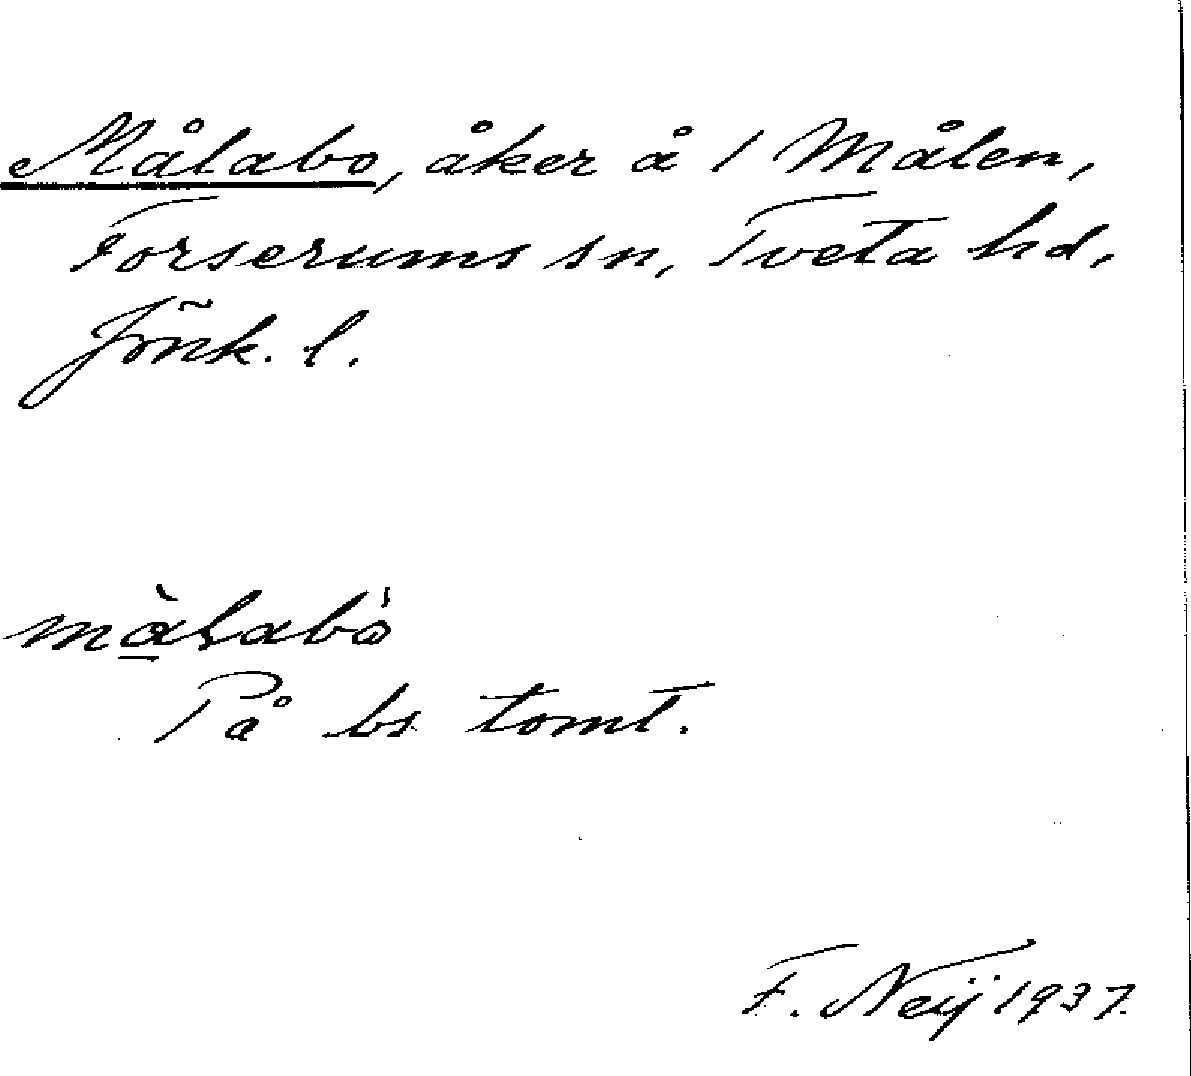 Målabo, åker å 1 Målen,
Forserums sn, Tveta hd,
Jönk. l.
mà̱ɭabó
På bs tomt.
F. Neij 1937.